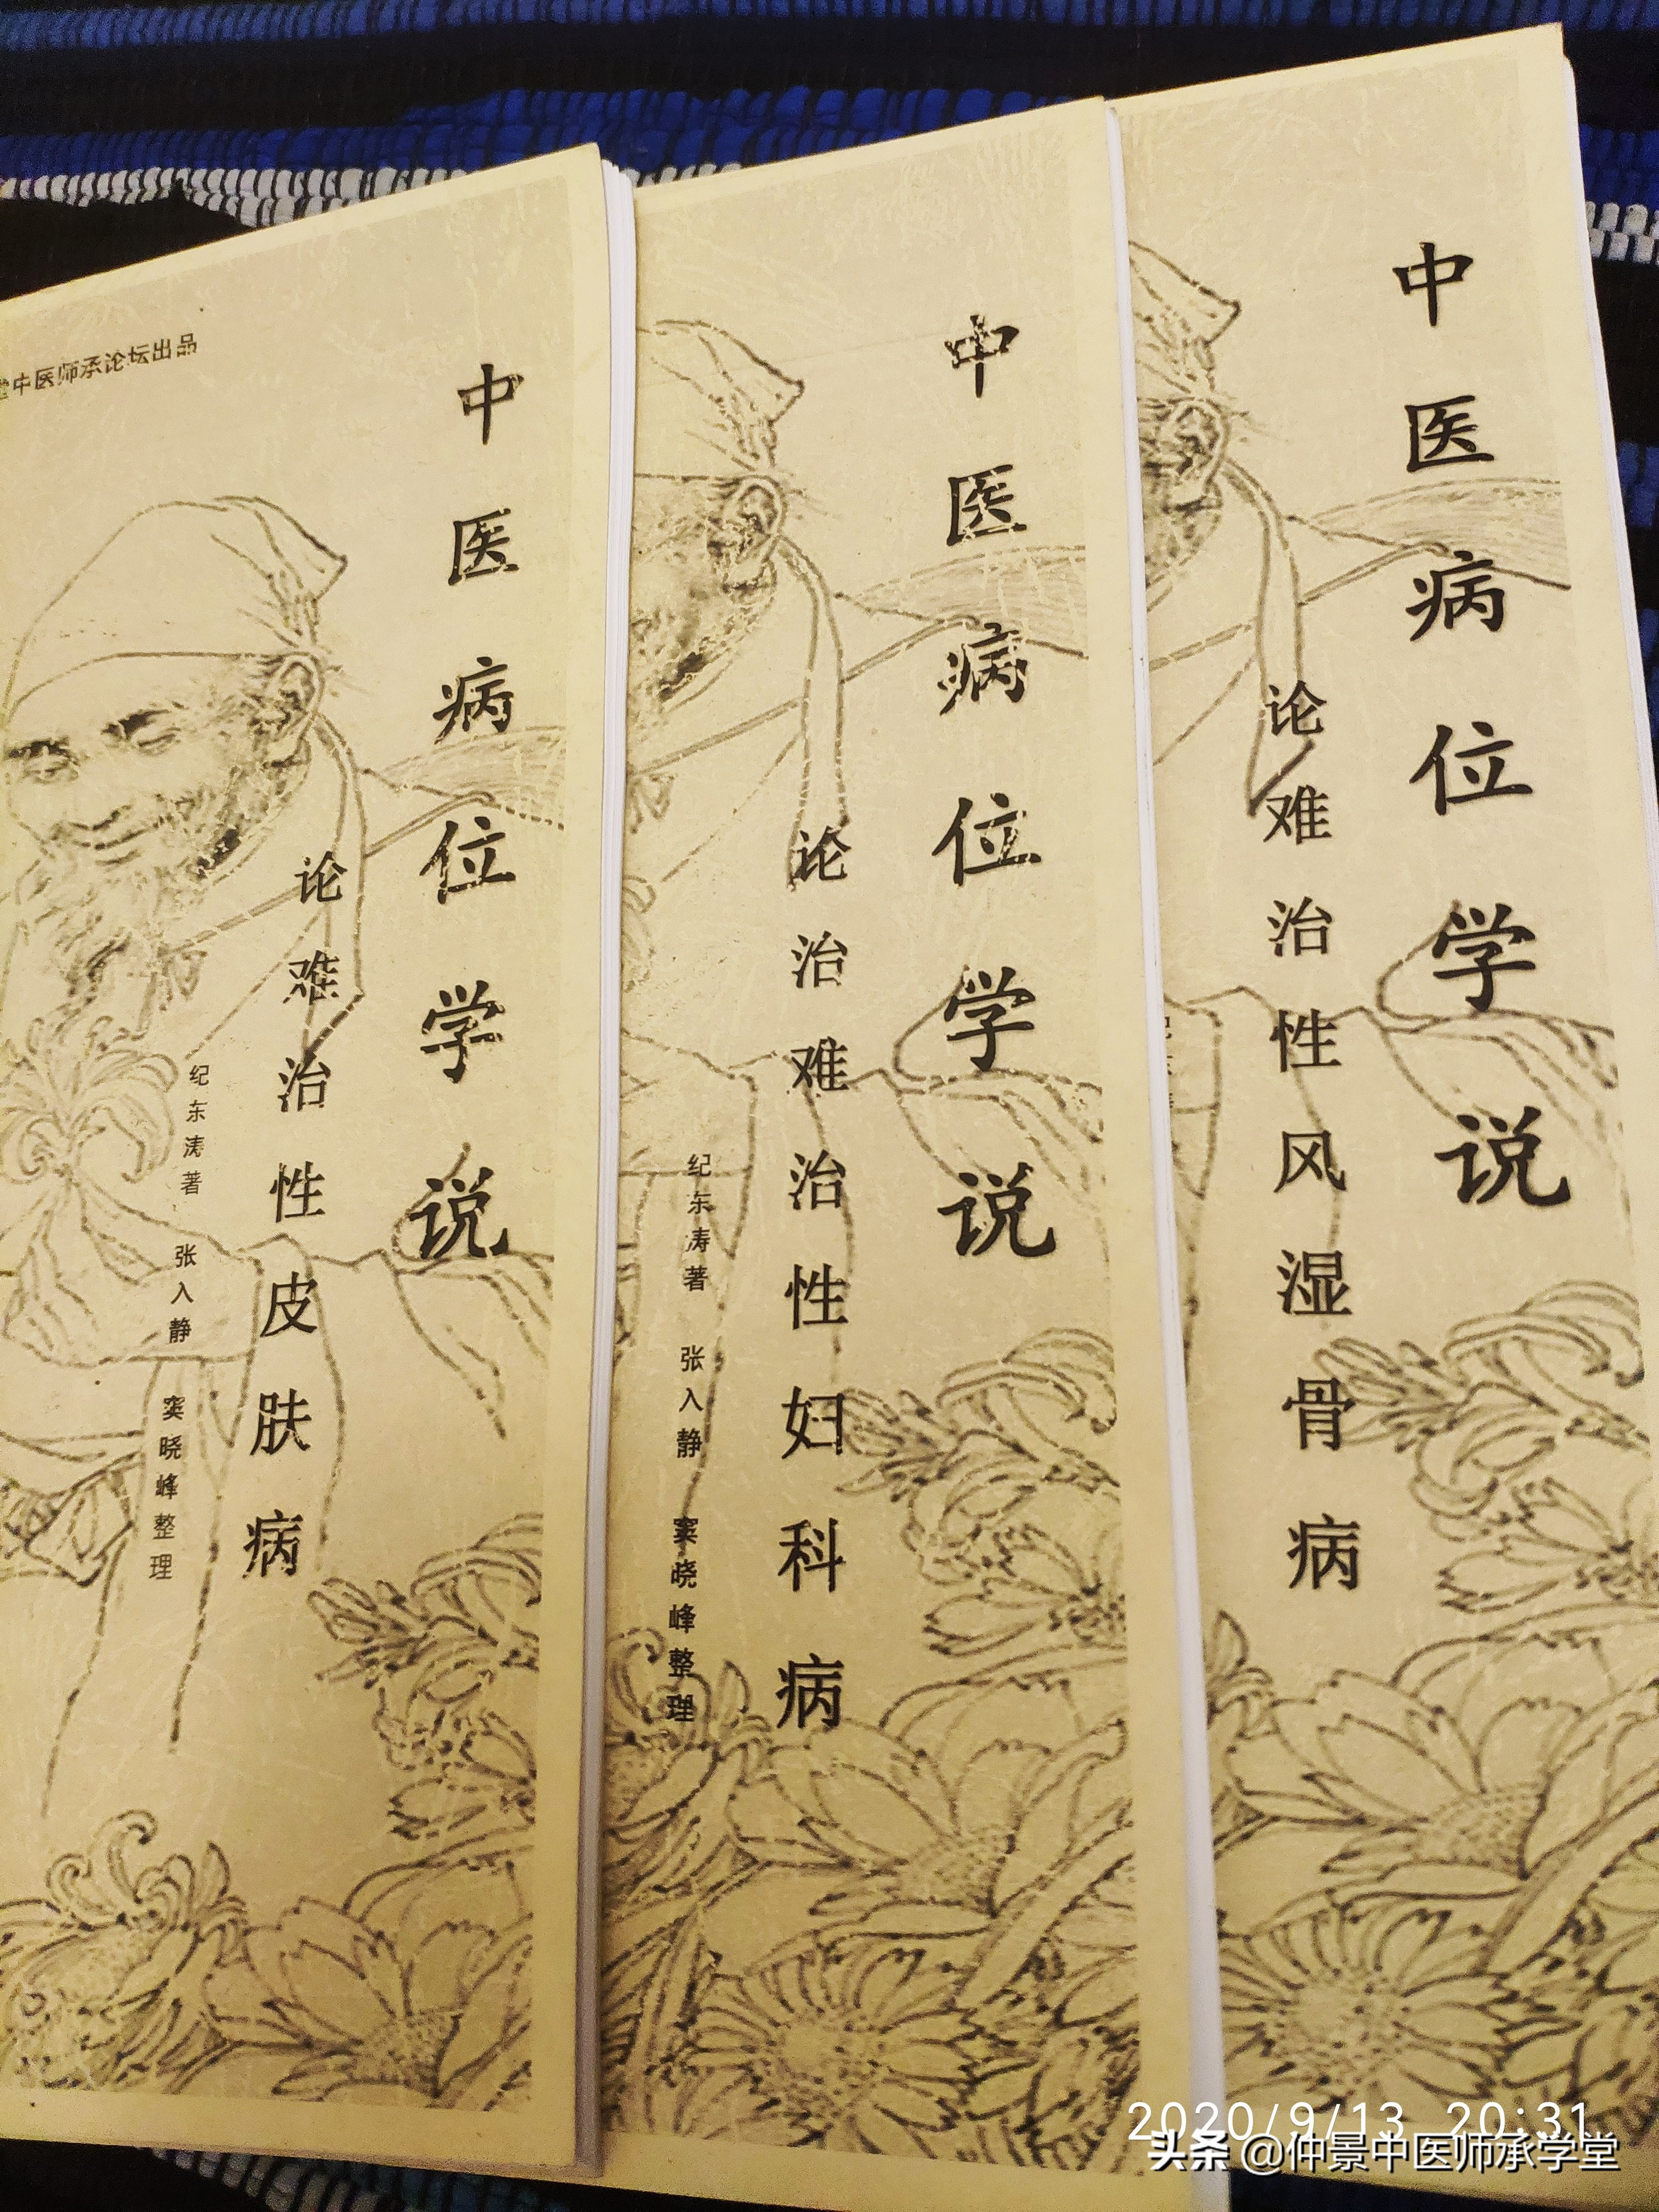 中医师承论坛出品
中医病位学说
论难治性皮肤病
纪东涛著 张入静 窦晓峰整理
中医病位学说
论治难治性妇科病
纪东涛著 张入静 窦晓峰整理
中医病位学说
论难治性风湿骨病
2020/9/13 20:31
头条 @仲景中医师承学堂